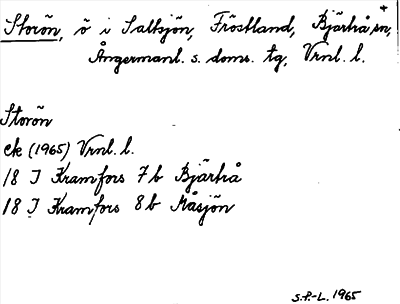 Storön, ö i Saltsjön, Fröstland, Bjärtrå sn, +
Ångermanl. s. doms. tg, Vrnl. l.
Storön
ek (1965) Vrnl. l.
18 I Kramfors 7 b Bjärtrå
18 I Kramfors 8 b Måsjön
S.P.-L. 1965